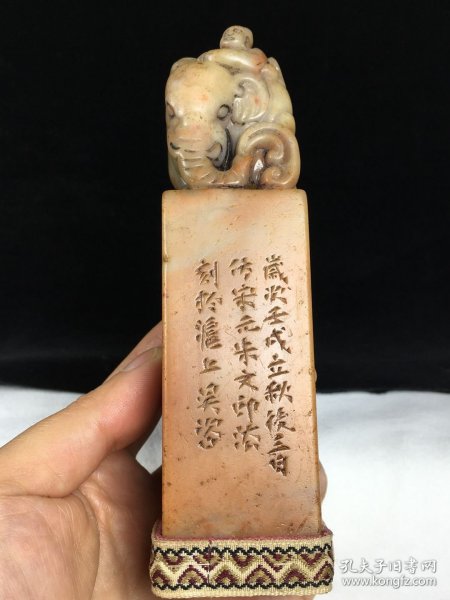 歲次壬戌立秋後三日
仿宋元朱文印法
刻於滬上吳容
孔夫子旧书网
www.kongfz.com